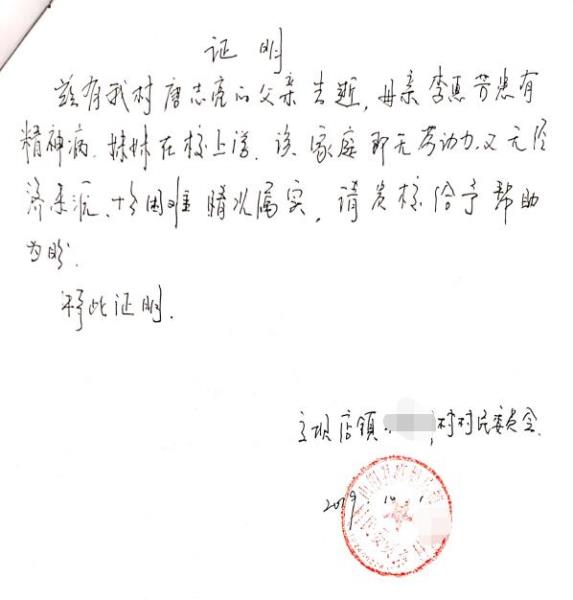 证明
兹有我村唐志亮的父亲去逝,母亲李惠芳患有
精神病.妹妹在校上学.该家庭即无劳动力,又无经
济来源、十分困难情况属实,请贵校给予帮助
为盼.
特此证明.
店镇 村村民委员会.
2019.10.1